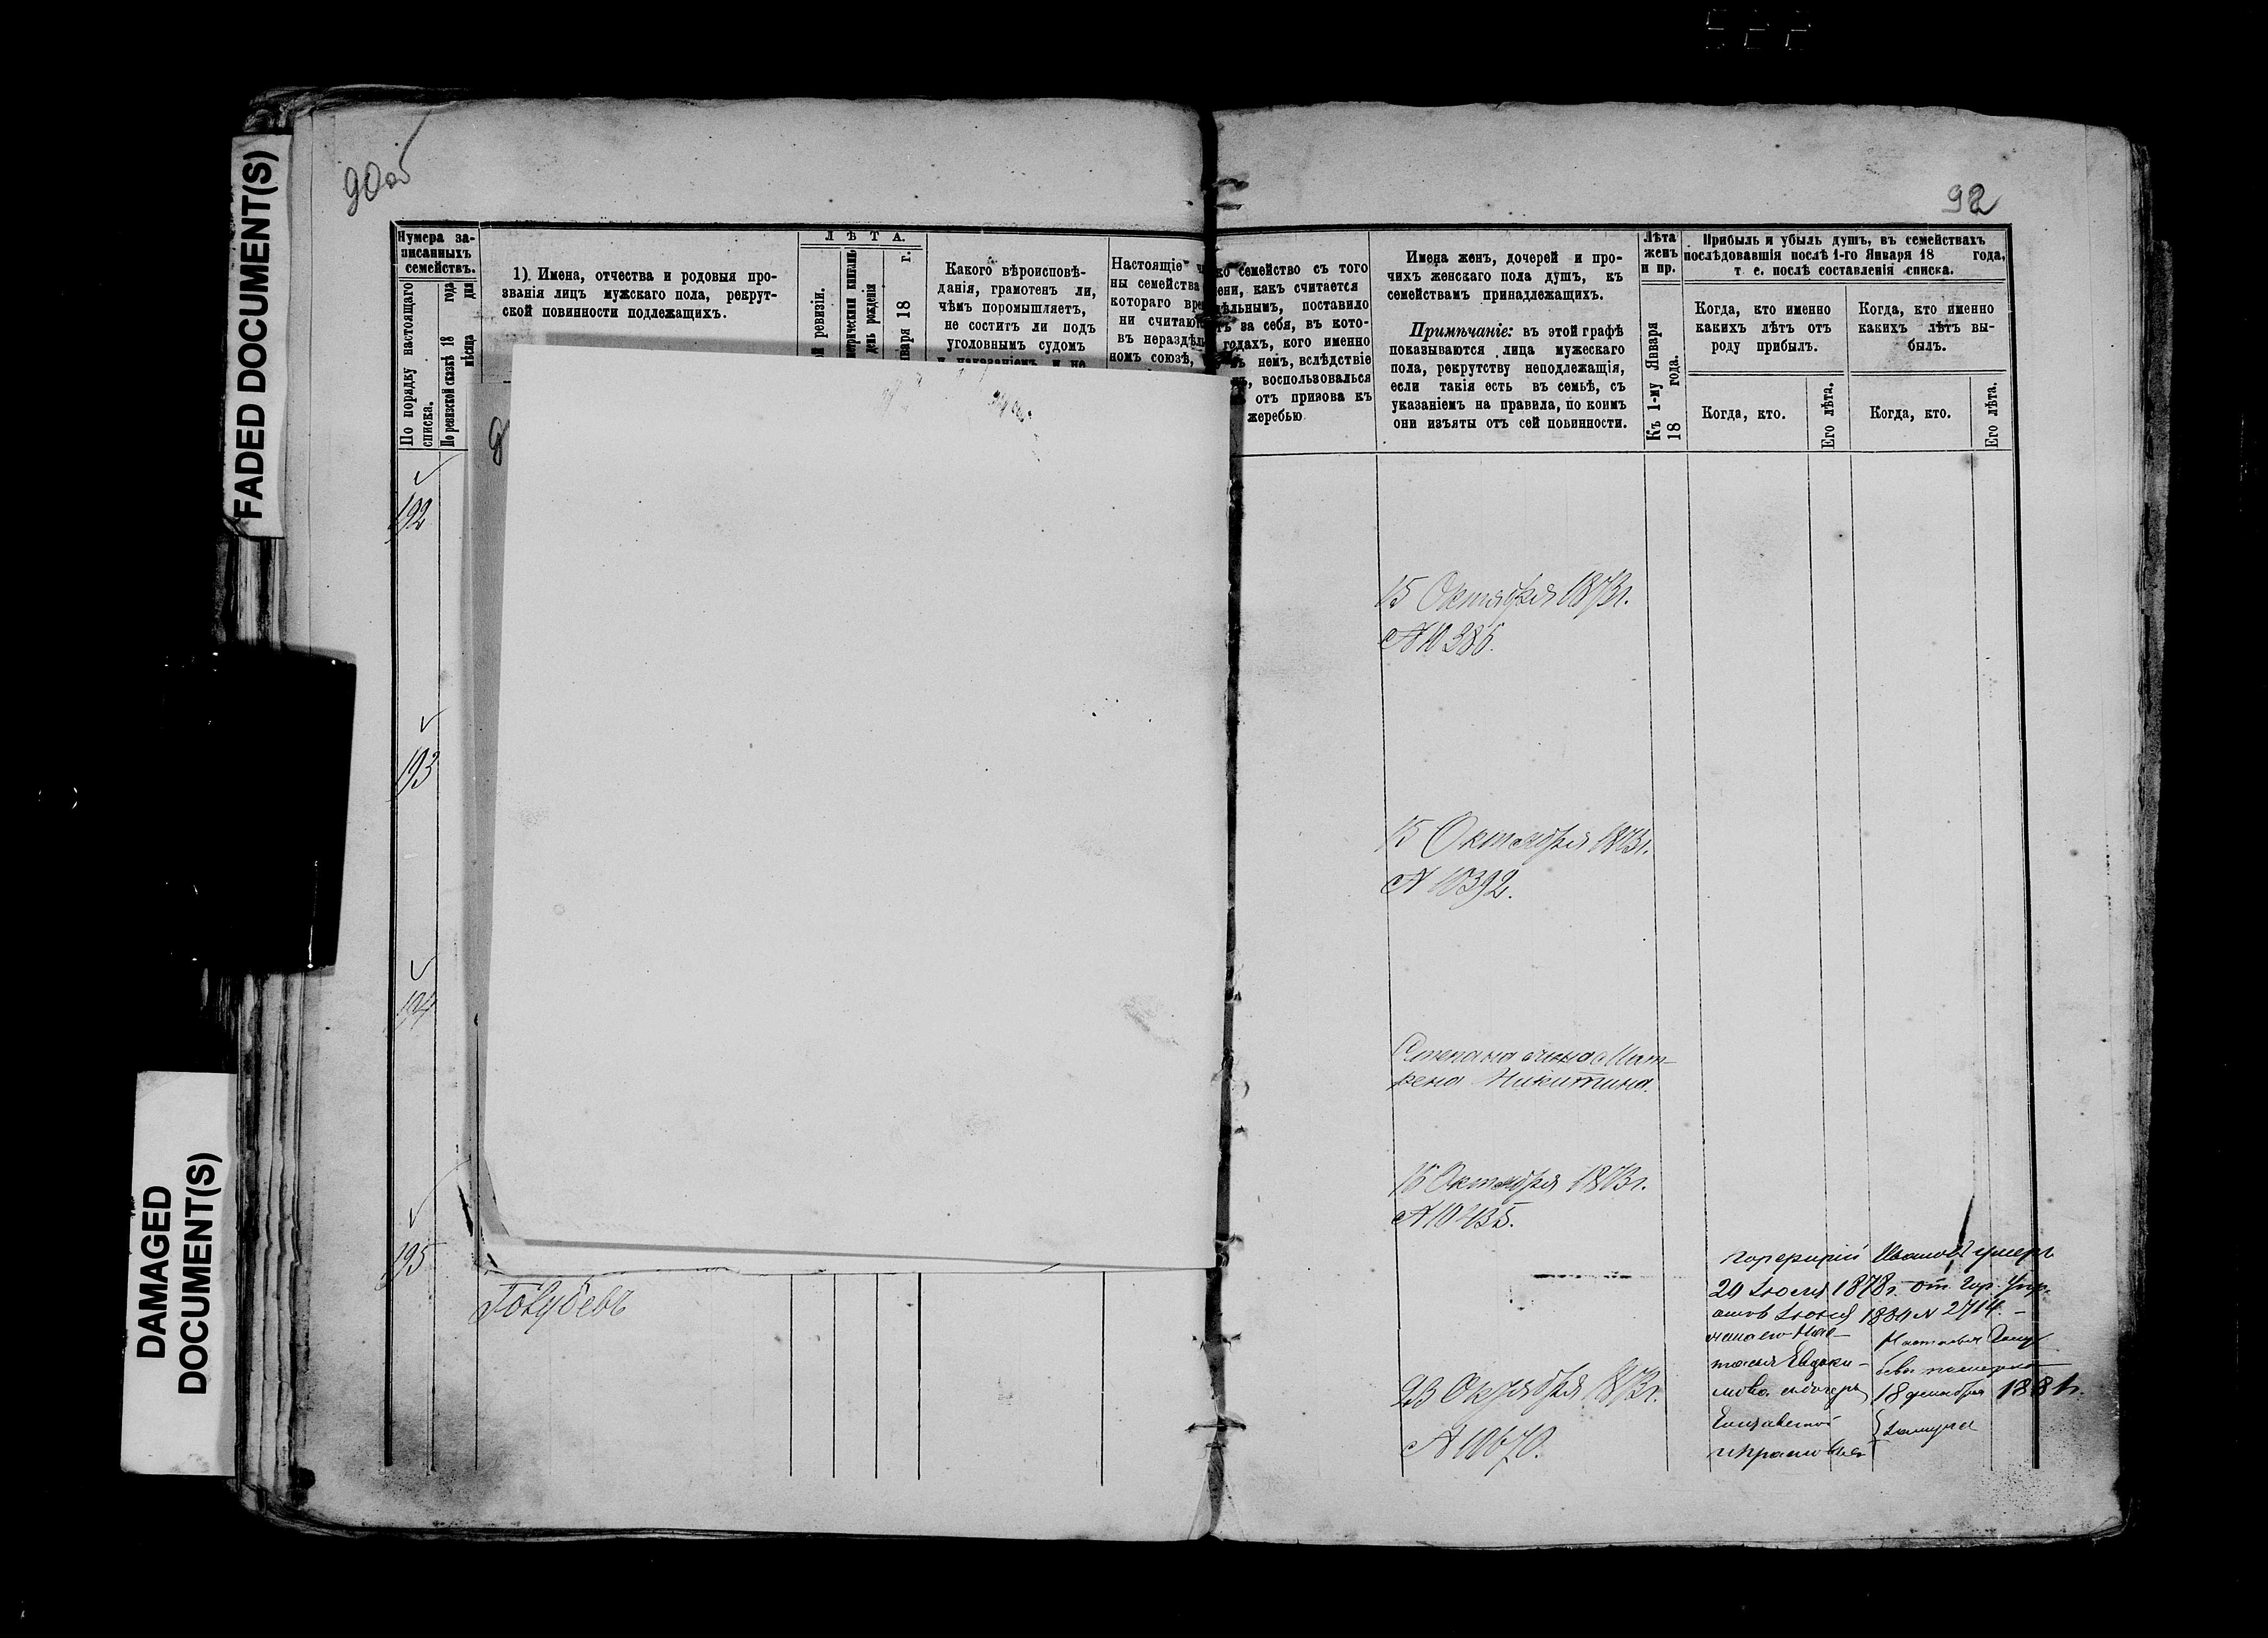 522
FADED DOCUMENT(S)
DAMAGED
DOCUMENT(S)
90 об
Нумера за-
писанныхъ
семействъ.
По порядку настоящаго
списка.
По ревизской сказкѣ 18 года
мѣсяца дня
1) Имена, отчества и родовыя про-
званія лицъ мужскаго пола, рекрут-
ской повинности подлежащихъ.
ЛѢТА.
й ревизіи.
метрическими книгамъ
день рожденія
нваря 18 г.
Какого вѣроисповѣ-
данія, грамотенъ ли,
чѣмъ поромышляетъ,
не соститъ ли подъ
уголовнымъ судомъ
и наказаніемъ и не
Настоящіе ч
ны семейства
котораго вре
ни считаю
въ нераздѣл
номъ союзѣ,
192
193
194
195
Голубевъ
92
ко семейство съ того
ени, какъ считается
дѣльнымъ, поставило
тъ за себя, въ кото-
годахъ, кого именно
немъ, вслѣдствіе
воспользовалься
отъ призова къ
жеребью
Имена женъ, дочерей и про-
чихъ женскаго пола душъ, къ
семействамъ принадлежащихъ.
Примѣчаніе: въ этой графѣ
показываются лица мужескаго
пола, рекрутству неподлежащія,
если такія есть въ семьѣ, съ
указаніемъ на правила, по коимъ
они изъяты отъ сей повинности.
Лѣта
женъ
и пр.
Къ 1-му Января
18 года.
Прибыль и убыль душъ, въ семействахъ
послѣдовавшія послѣ 1-го Января 18 года,
т. е. послѣ составленія списка.
Когда, кто именно
какихъ лѣтъ отъ
роду прибылъ.
Когда, кто именно
какихъ лѣтъ вы-
былъ.
Когда, кто.
Его лѣта.
Когда, кто.
Его лѣта.
15 Октября 1873г.
№ 10386.
15 Октября 1873г.
№ 10392.
Степана жена Мат-
рена Никитина.
16 Октября 1873г.
№ 10435.
23 Октября 1873г.
№ 10670.
Порфирій Ивановъ умеръ
1878г. от Гор. Упр.
№ 2714
18 декабря 1881г.